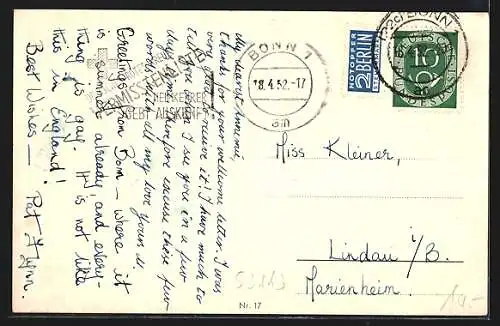 My dearest Annemie,
thanks for your welcome letter. I was
very glad to receive it! I have much to
tell you when I see you in a few
days, therefore excuse these few
words with all my love yours U.
Greetings from Bonn – where it
is summer already and every-
thing is gay. It is not like
this in England!
Best Wishes –
Pat Flynn.
BONN 1
18.4.52.-17
am
NOTOPFER
2 BERLIN
STEUERMARKE
(22c) BONN
10
DEUTSCHE
BUNDESPOST
Miss Kleiner,
Lindau i/B.
Marienheim.
Nr. 17